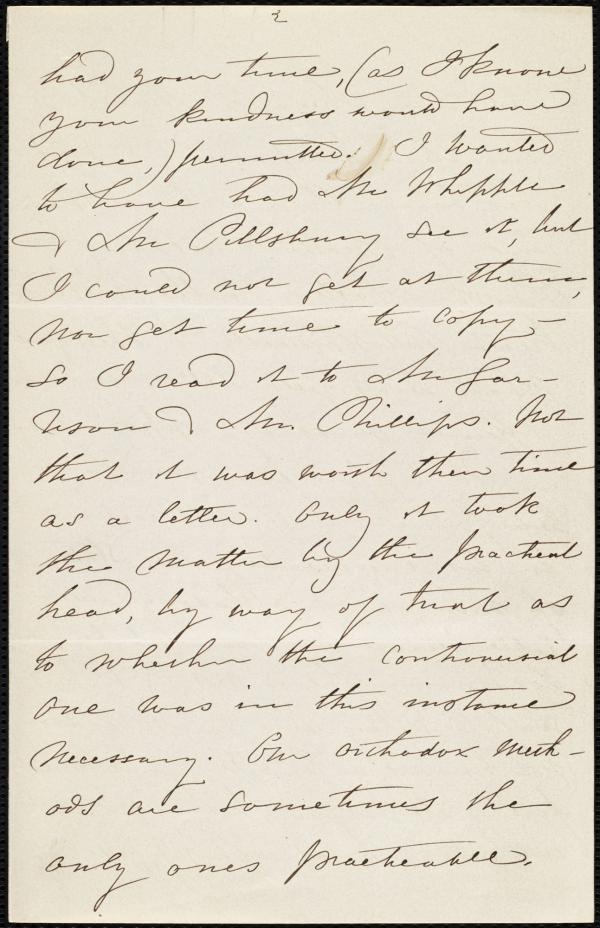 2
had your time, (as I know
your kindness would have
done,) permitted. I wanted
to have had Mr Whipple
& Mr Pillsbury see it, but
I could not get at them,
nor get time to copy,—
so I read it to Mr Gar-
rison & Mr. Phillips. Not
that it was worth their time
as a letter. Only it took
the matter by the practical
head, by way of trial as
to whether the controversial
one was in this instance
necessary. Our orthodox meth-
ods are sometimes the
only ones practicable.